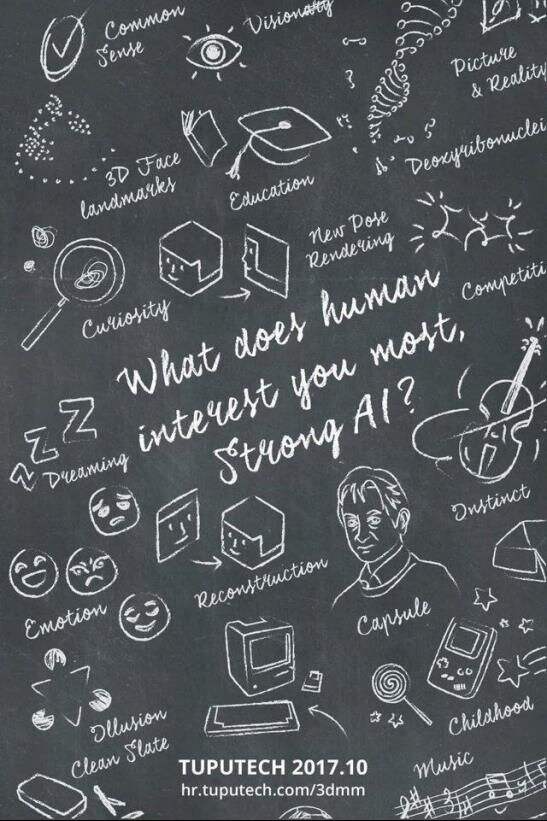 Common
Sense
Visionary
Picture
& Reality
3D Face
landmarks
Education
Deoxyribonuclei
New Pose
Rendering
Curiosity
Competiti
What does human
interest you most,
Strong AI?
zzz
Dreaming
Instinct
Reconstruction
Emotion
Capsule
Illusion
Clean Slate
Childhood
Music
TUPUTECH 2017.10
hr.tuputech.com/3dmm